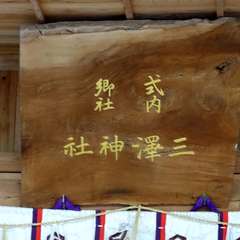 式内
郷社
三澤神社